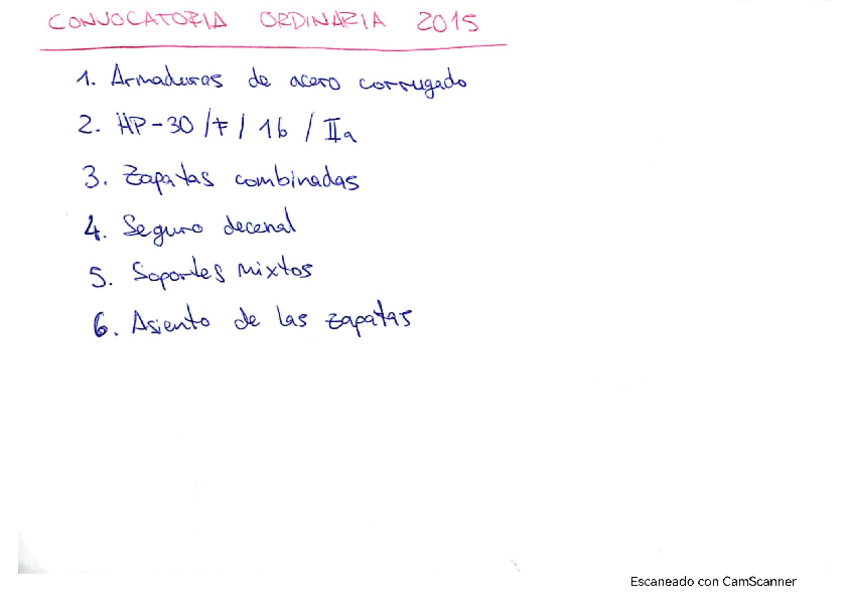 CONVOCATORIA ORDINARIA 2015
1. Armaduras de acero corrugado
2. HP-30/F/16/IIa
3. Zapatas combinadas
4. Seguro decenal
5. Soportes mixtos
6. Asiento de las zapatas
Escaneado con CamScanner